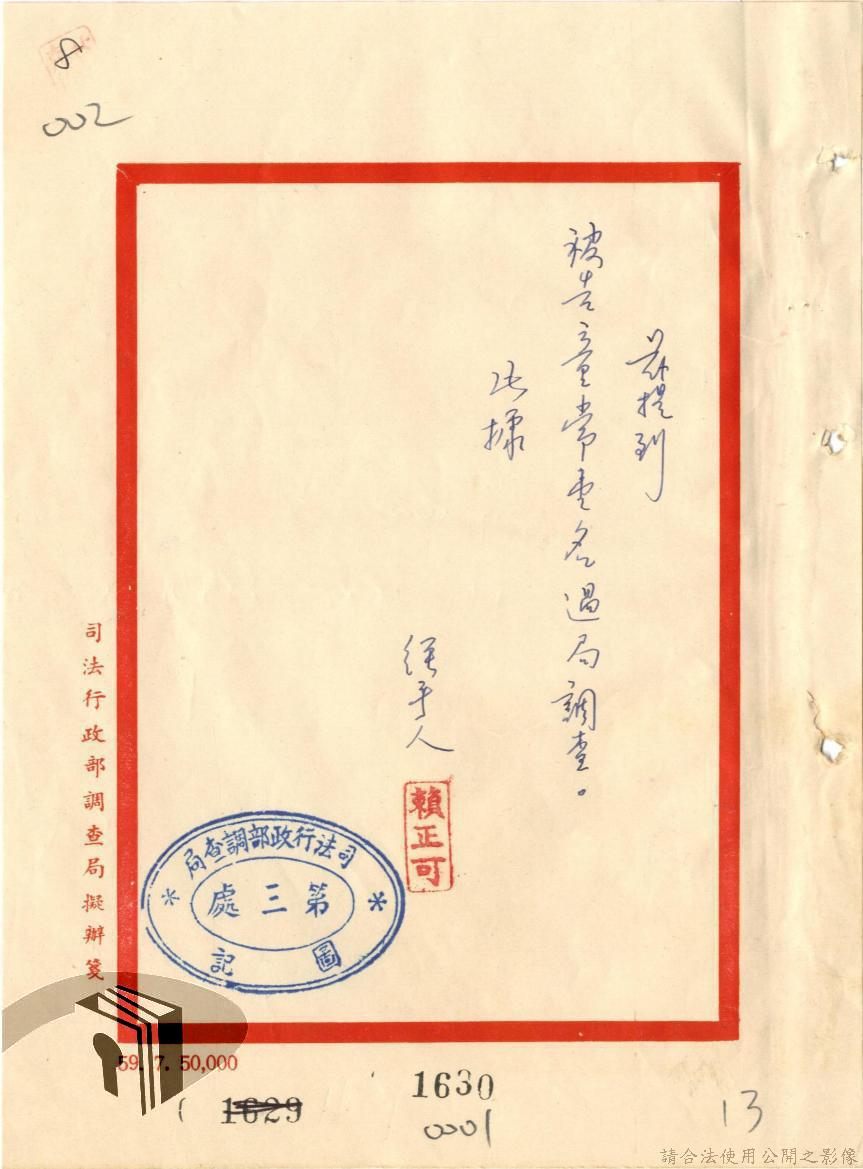 8
002
茲提到
被告童常壹名過局調查。
此據
經手人
賴正可
司法行政部調查局
第三處
圖記
司法行政部調查局擬辦箋
59. 7. 50,000
1629
1630
0001
13
請合法使用公開之影像